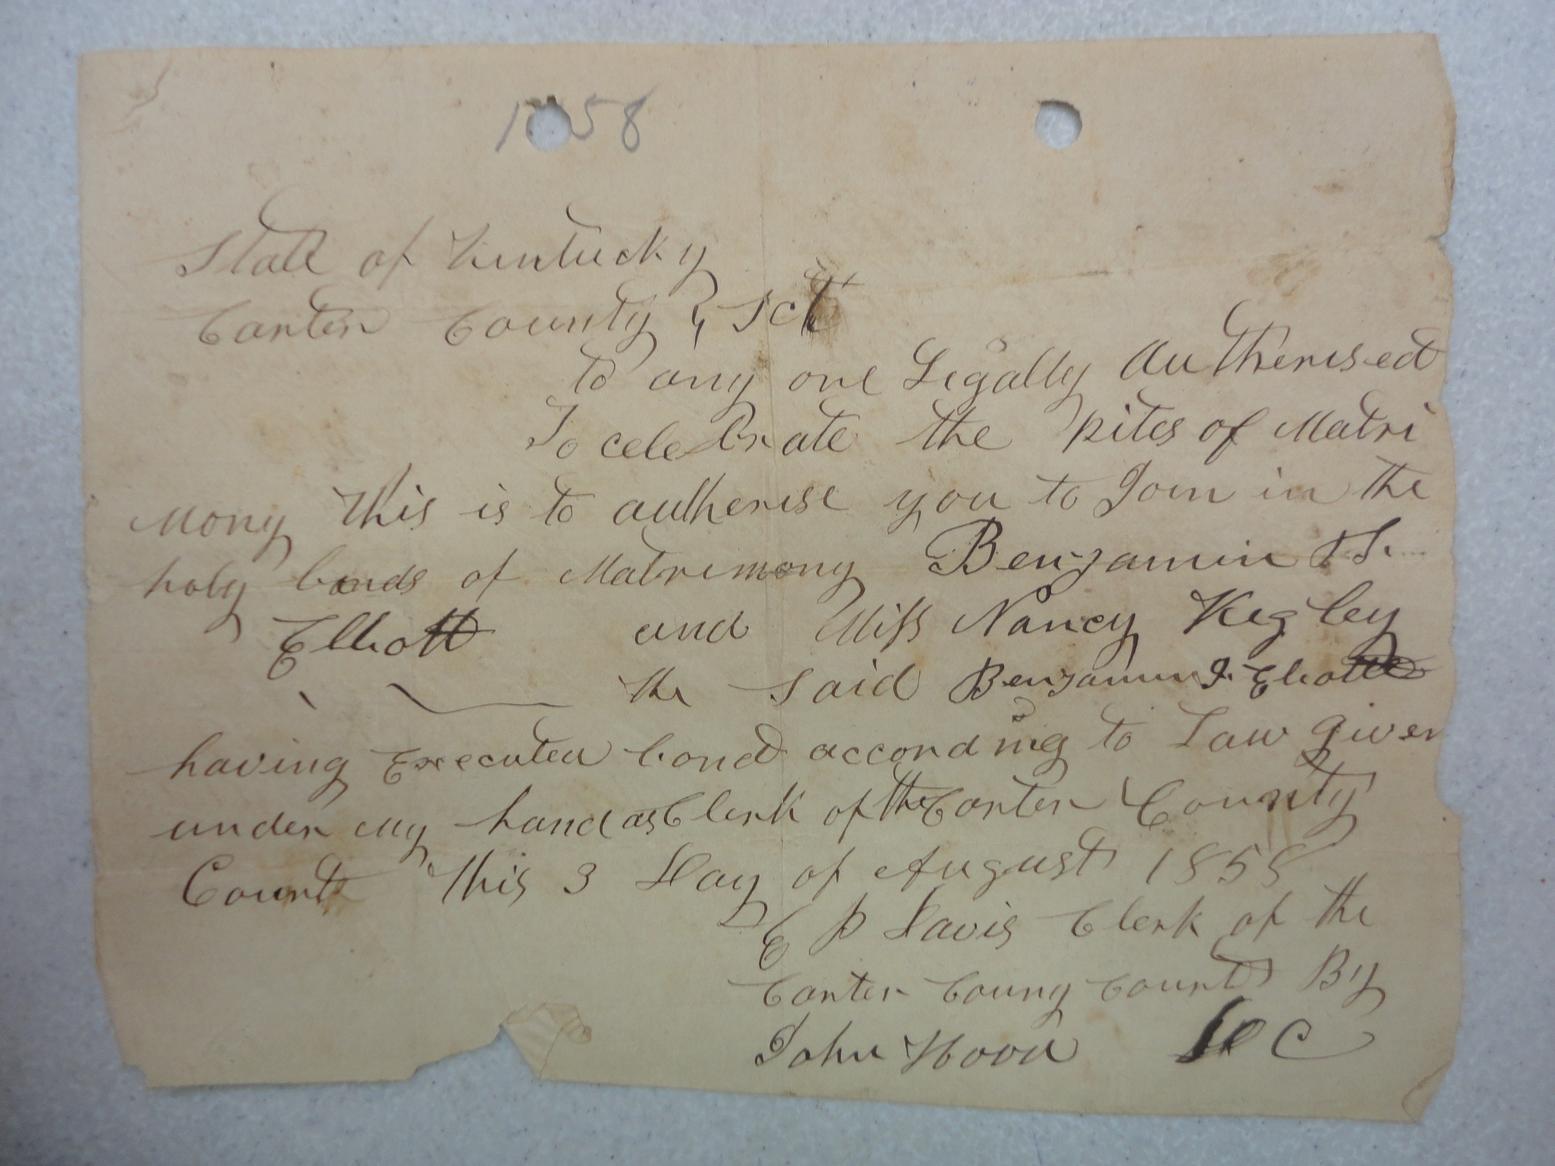 1858
State of Kentucky
Carter County } Sct
to any one Legally Autherised
To celebrate the Rites of Matri
mony this is to autherise you to Join in the
holy bonds of Matrimony Benjamin
Elliott and Miss Nancy Kegley
the said Benjamin J. Eliott
having Executed bond according to Law given
under my hand as Clerk of the Carter County
Court this 3 Day of August 1858
E P Davis Clerk of the
Carter Couny Court By
John Hood DC